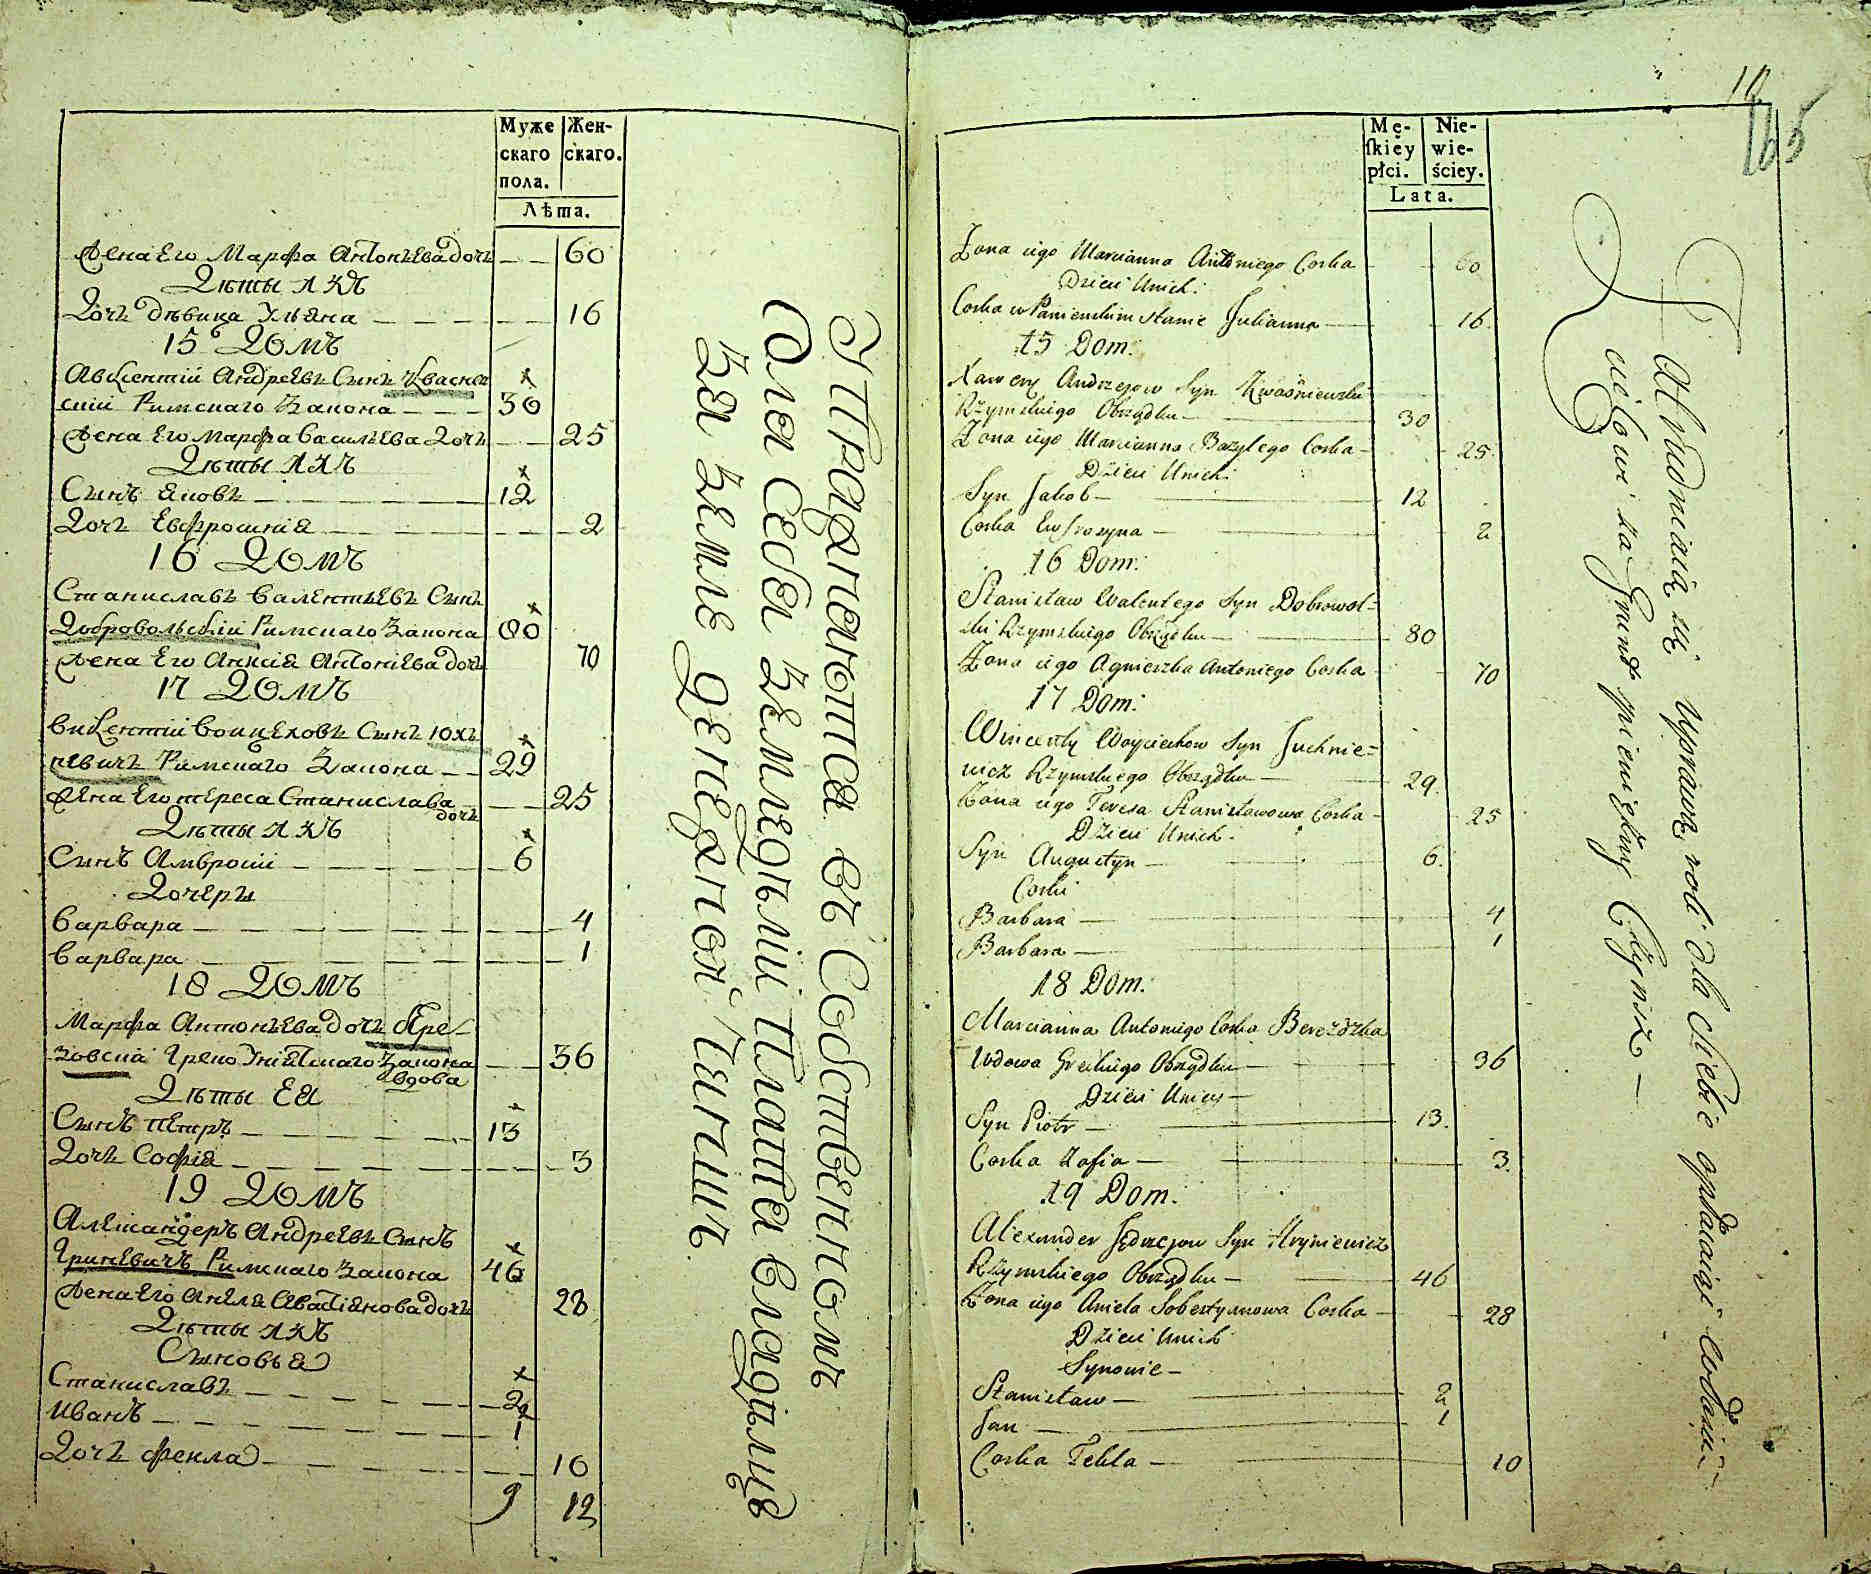 Муже
скаго
пола.
Жен-
скаго.
Лѣта.
Жена Его Марфа Антонъева дочь — 60
Дѣты ихъ
Дочь дѣвица Ульяна — 16
15 Домъ
Авксентій Андреевъ Сынъ Квасне
скій Римскаго Закона — 30
Жена Его Марфа Васильева Дочь — 25
Дѣты ихъ
Сынъ Яковъ — 12
Дочь Евфросинія — 2
16 Домъ
Станиславъ Валентьевъ Сынъ
Добровольскій Римскаго Закона 80
Жена Его Анисія Антоніева дочь 70
17 Домъ
Викентій Воицеховъ Сынъ Юхъ
невичъ Римскаго Закона — 29
Жена Его тереса Станислава — 25
дочь
Дѣты ихъ
Сынъ Амвросій — 6
Дочери
Варвара — 4
Варвара — 1
18 Домъ
Марфа Антонъева дочь Бере-
зовска Греко Уніятскаго Закона — 36
вдова
Дѣты Ея
Сынъ петръ — 13
Дочь Софія — 3
19 Домъ
Александеръ Андреевъ Сынъ
Гриневичъ Римскаго Закона 46
Жена Его Анеля Севастіянова дочь 28
Дѣты ихъ
Сыновья
Станиславъ — 2
Иванъ — 1
Дочь фекла — 10
9 12
Упражняются въ Собственномъ
для себя Земледѣліи Плата владѣлце
За Землю денежной Чиншъ
10
165
Mę-
skiey
płci.
Nie-
wie-
ściey.
Lata.
Zona iego Marcianna Antoniego Corka 60
Dzieci Onich:
Corka w Panienskim stanie Julianna — 16.
15 Dom:
Xawery Andrzejow Syn Kwasniewski
Rzymskiego Obrządku — 30
Zona iego Marcianna Bazylego Corka — 25.
Dzieci Onich:
Syn Jakob — 12
Corka Eufrozyna — 2
16 Dom:
Stanisław Walentego Syn Dobrowol=
ski Rzymskiego Obrządku — 80
Zona iego Agnieszka Antoniego Corka 70
17 Dom:
Wincenty Woyciechow Syn Juchnie=
wicz Rzymskiego Obrządku — 29.
Zona iego Teresa Stanisławowa Corka — 25
Dzieci Onich.
Syn Augustyn — 6.
Corki
Barbara — 4
Barbara — 1
18 Dom:
Marcianna Antoniego Corka
Wdowa Greckiego Obrządku — 36
Dzieci Oniey —
Syn Piotr — 13.
Corka Zofia — 3.
19 Dom:
Alexander Jędrzejow Syn Hryniewicz
Rzymskiego Obrządku — 46
Zona iego Aniela Sobestyanowa Corka — 28
Dzieci Onich
Synowie —
Stanisław — 2
Jan — 1
Corka Tekla — 10
Zatrudniaią się Uprawą roli dla siebie opłacaiąc Właści
cielowi za Grunt pieniężny Czynsz —